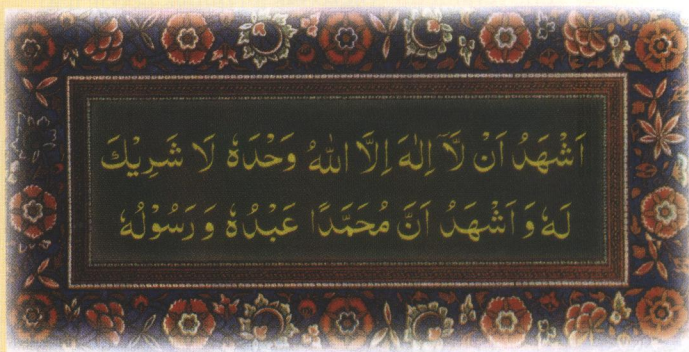 اَشْهَدُ اَنْ لَّآ اِلٰهَ اِلَّا اللهُ وَحْدَهٗ لَا شَرِيْكَ
لَهٗ وَ اَشْهَدُ اَنَّ مُحَمَّدًا عَبْدُهٗ وَ رَسُوْلُهٗ